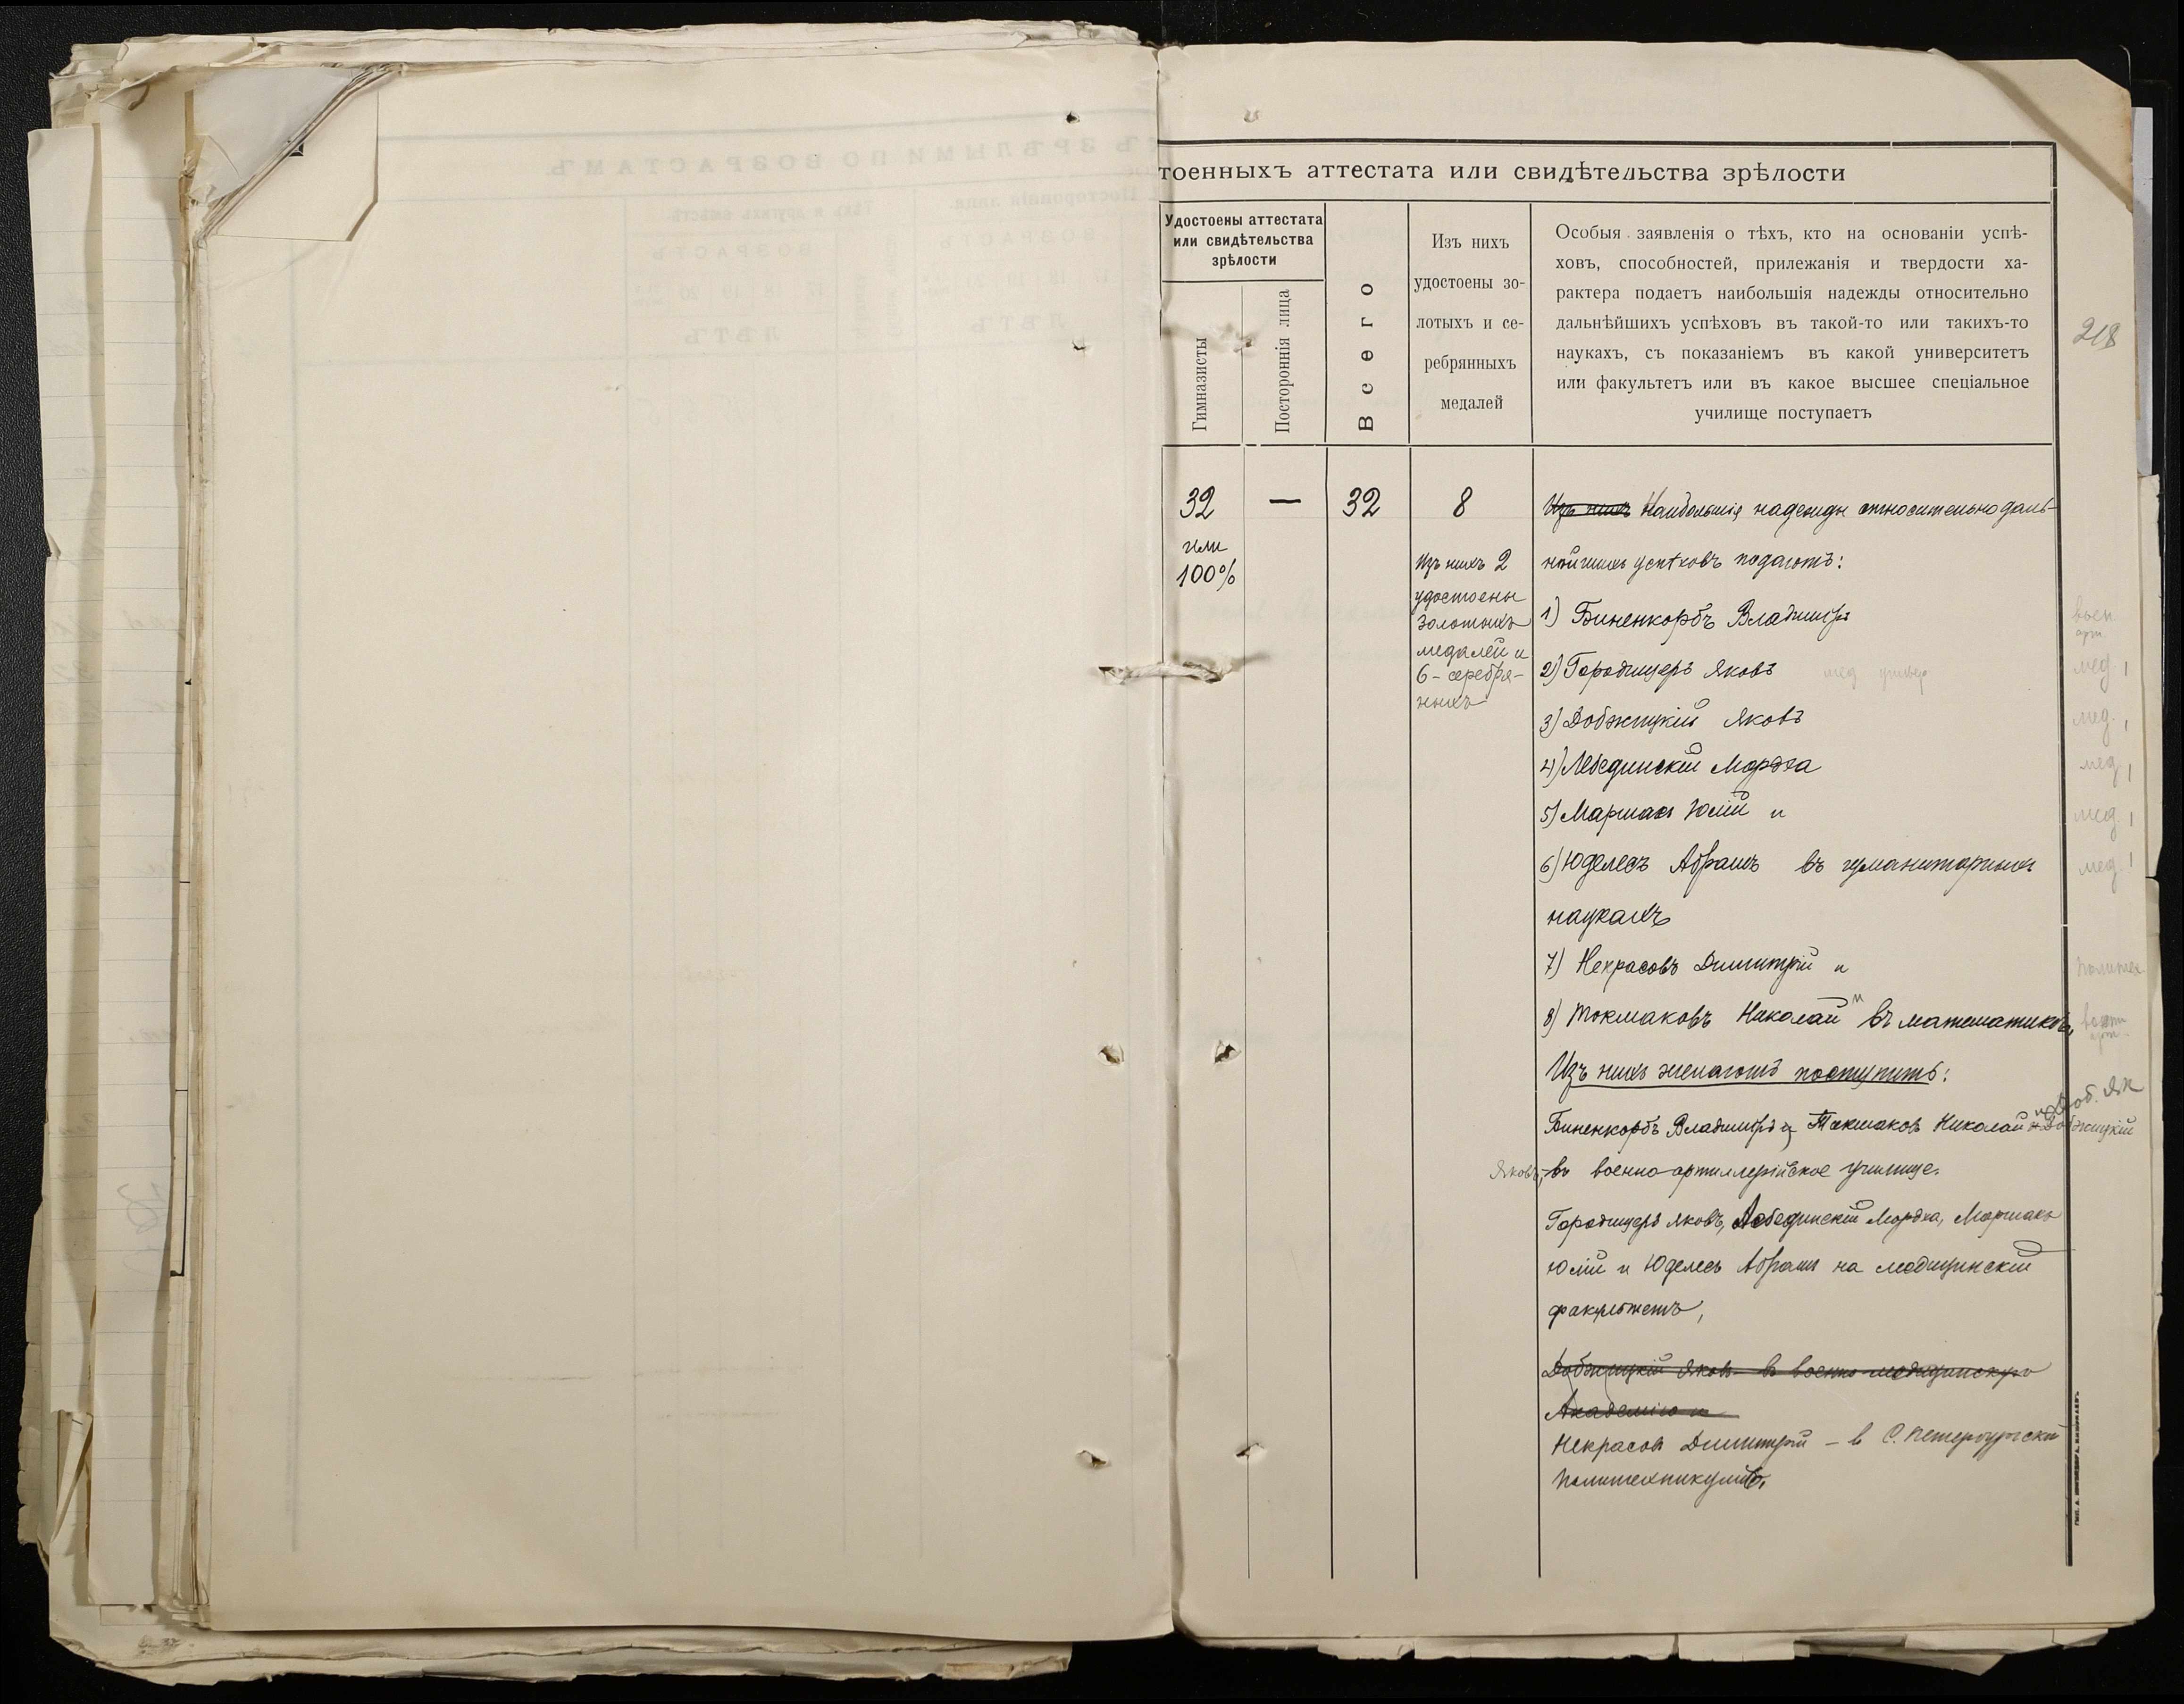 тоенныхъ аттестата или свидѣтельства зрѣлости
Удостоены аттестата
или свидѣтельства
зрѣлости
Гимназисты
Посторонніа лица
Всего
Изъ нихъ
удостоены зо-
лотыхъ и се-
ребрянныхъ
медалей
Особыя заявленія о тѣхъ, кто на основаніи успѣ-
ховъ, способностей, прилежанія и твердости ха-
рактера подаетъ наибольшія надежды относительно
дальнѣйшихъ успѣховъ въ такой-то или такихъ-то
наукахъ, съ показаніемъ въ какой университетъ
или факультетъ или въ какое высшее спеціальное
училище поступаетъ
218
32
или
100%
—
32
8
Изъ нихъ 2
удостоены
золотыхъ
медалей и
6 - серебря-
ныхъ
Изъ нихъ Наибольшія надежды относительно даль-
нѣйшихъ успѣховъ подаютъ:
1) Биненкорбъ Владиміръ
2) Городищеръ Яковъ мед универ
3) Добжицкій Яковъ
4) Лебединскій Мордха
5) Маршакъ Юлій и
6) Юделесъ Абрамъ въ гуманитарныхъ
наукахъ
7) Некрасовъ Димитрій и
8) Токмаковъ Николай въ математикѣ
Изъ нихъ желаютъ поступить:
Биненкорбъ Владиміръ и Токмаковъ Николай и Добжицкій
Яковъ, въ военно-артиллерійское училище.
Городищеръ Яковъ, Лебединскій Мордха, Маршакъ
Юлій и Юделесъ Абрамъ на медицинскій
факультетъ,
Добжицкій Яковъ въ военно-медицинскую
Академію и
Некрасовъ Димитрій - въ С. Петербургскій
Политехникумъ.
воен
арт.
мед.
мед.
мед.
мед.
мед.
Политех.